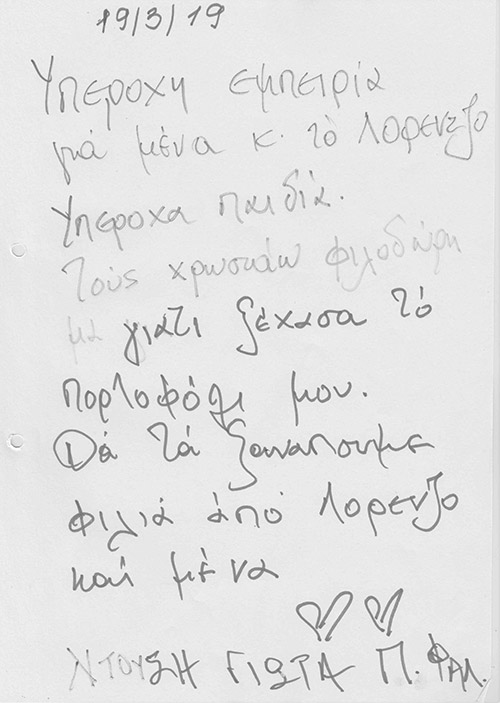 19/3/19
Υπεροχη εμπειρία
γιά μένα κ. τό Λορενζο
Υπεροχα παιδιά.
τούς χρωσταω φιλοδωρη
μα γιατι ξέχασα τό
πορτοφόλι μου.
Θά τά ξαναπουμε
φιλιά άπό Λορενζο
καί μένα
ΝΤΟΥΣΗ ΓΙΩΤΑ Π. ΦΑΛ.